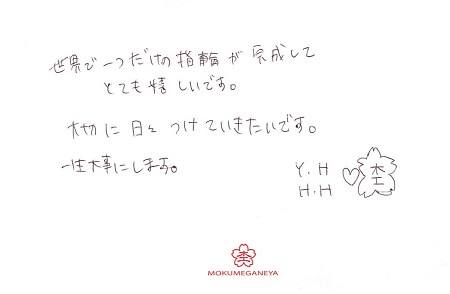 世界で一つだけの指輪が完成して
とても嬉しいです。
大切に日々つけていきたいです。
一生大事にします。
Y.H ♡ 杢
H.H
杢
MOKUMEGANEYA